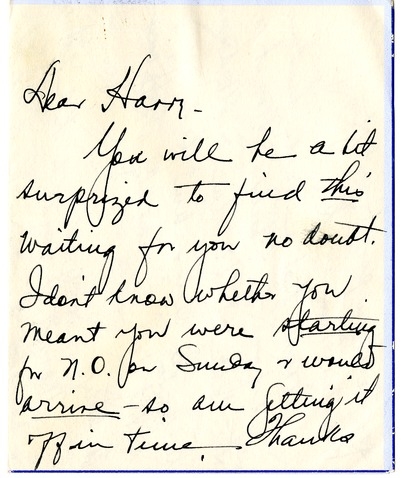 Dear Harry -
You will be a bit
surprized to find this
waiting for you no doubt.
I don't know whether you
meant you were starting
for N.O. on Sunday & would
arrive - so am getting it
off in time. Thanks